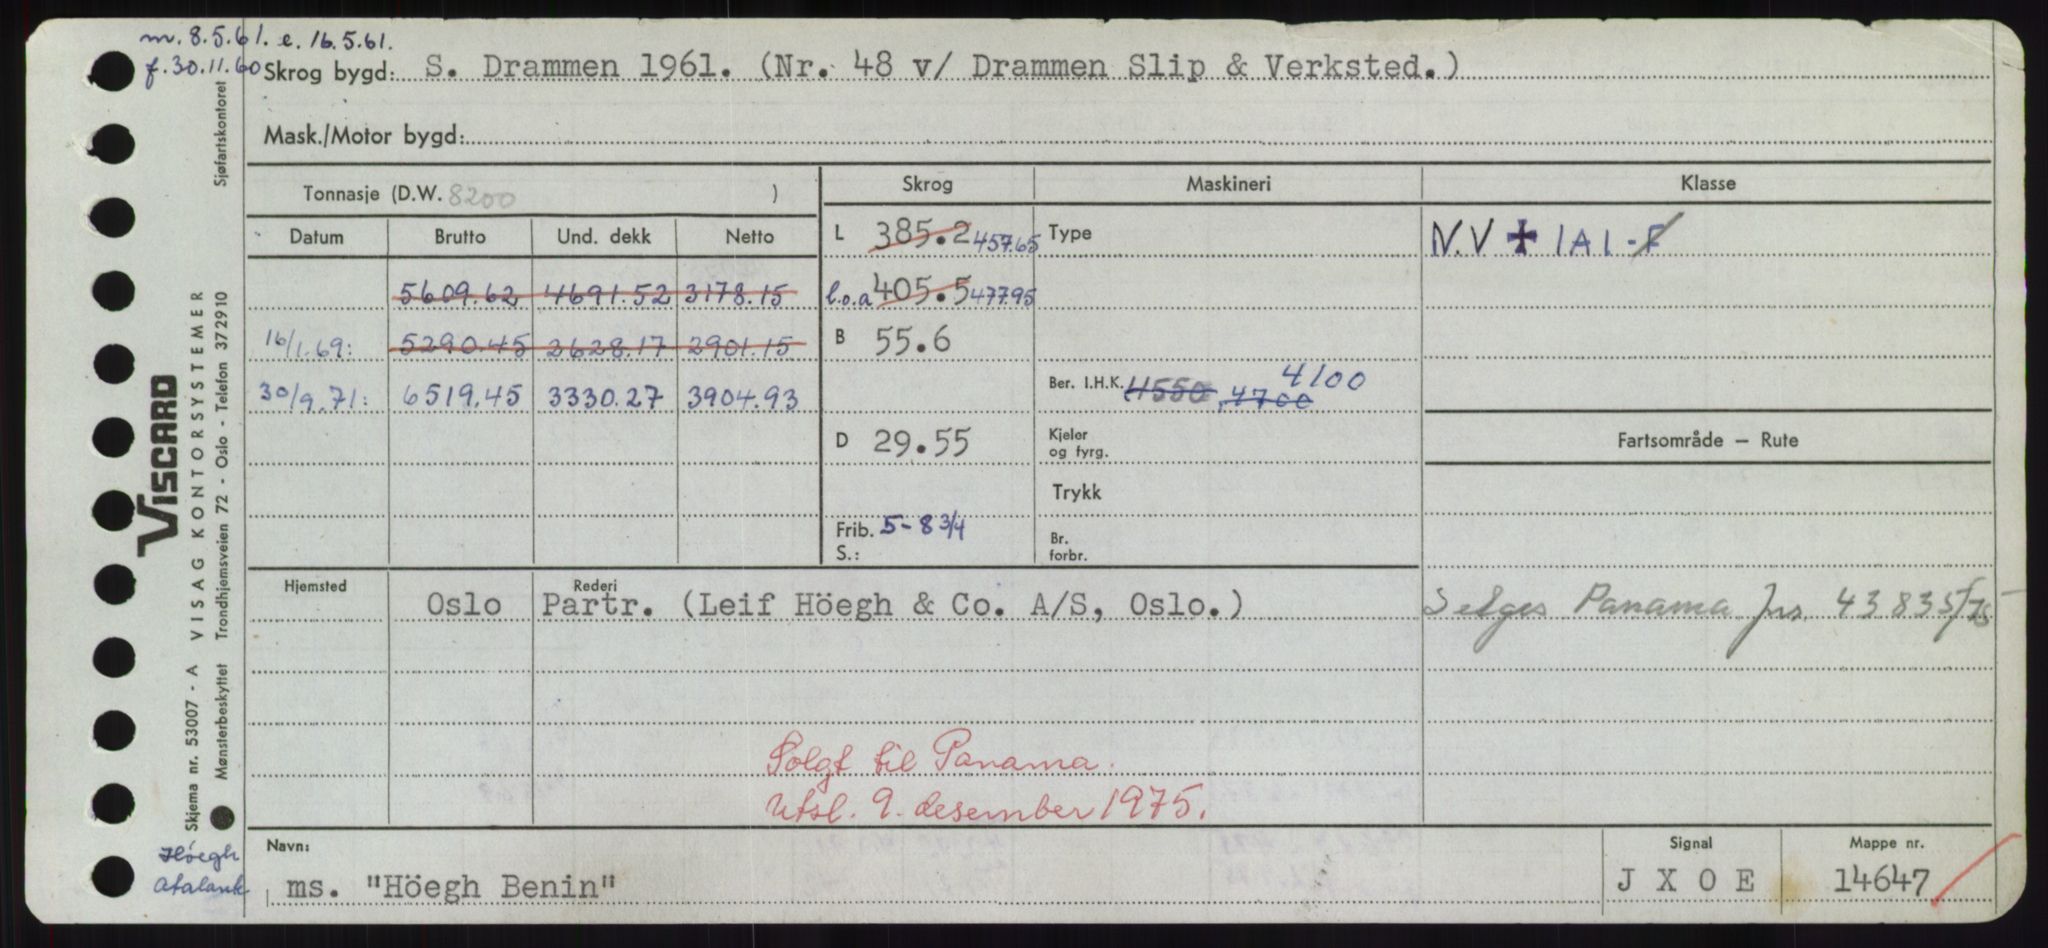 m. 8.5.61. e. 16.5.61.
f. 30.11.60
Skrog bygd: S. Drammen 1961. (Nr. 48 v/ Drammen Slip & Verksted.)
Mask./Motor bygd:
Tonnasje (D.W. 8200 )
Skrog Maskineri Klasse
Datum Brutto Und. dekk Netto
L 385.2 457.65 Type N.V ✠ 1A1 -F
5609.62 4691.52 3178.15
l.o.a 405.5 477.95
16/1.69: 5290.45 2628.17 2901.15
B 55.6
30/9.71: 6519.45 3330.27 3904.93
Ber. I.H.K. 4550 4700 4100
D 29.55
Kjeler
og fyrg.
Fartsområde — Rute
Trykk
Frib. 5-8 3/4
S.:
Br.
forbr.
Hjemsted Rederi
Oslo Partr. (Leif Höegh & Co. A/S, Oslo.)
Selges Panama Jnr. 43835/75
Solgt til Panama.
Utsl. 9. desember 1975.
Navn: Signal Mappe nr.
ms. "Höegh Benin" J X O E 14647
Höegh
Atalank
VISCARD
VISAG KONTORSYSTEMER
Skjema nr. 53007 - A
Mønsterbeskyttet Trondhjemsveien 72 - Oslo - Telefon 372910 Sjøfartskontoret